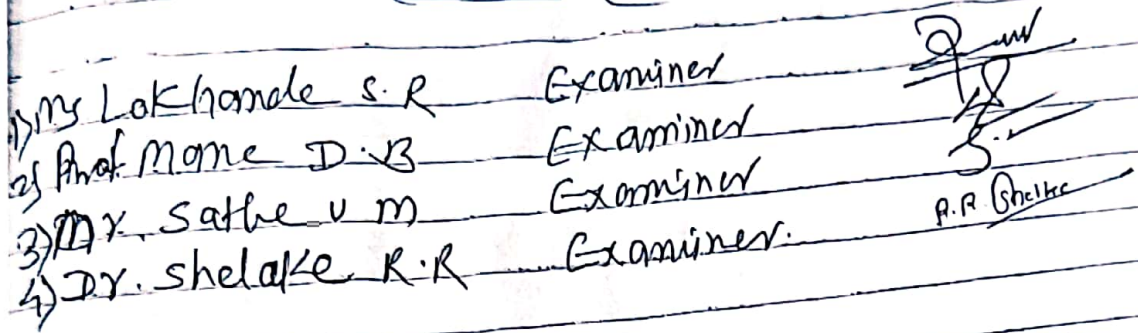 1) Ms Lokhande S. R Examiner
2) Prof. Mane D. B Examiner
3) Mr. Sathe U M Examiner
4) Dr. Shelake R.R Examiner.
R.R. Shelke